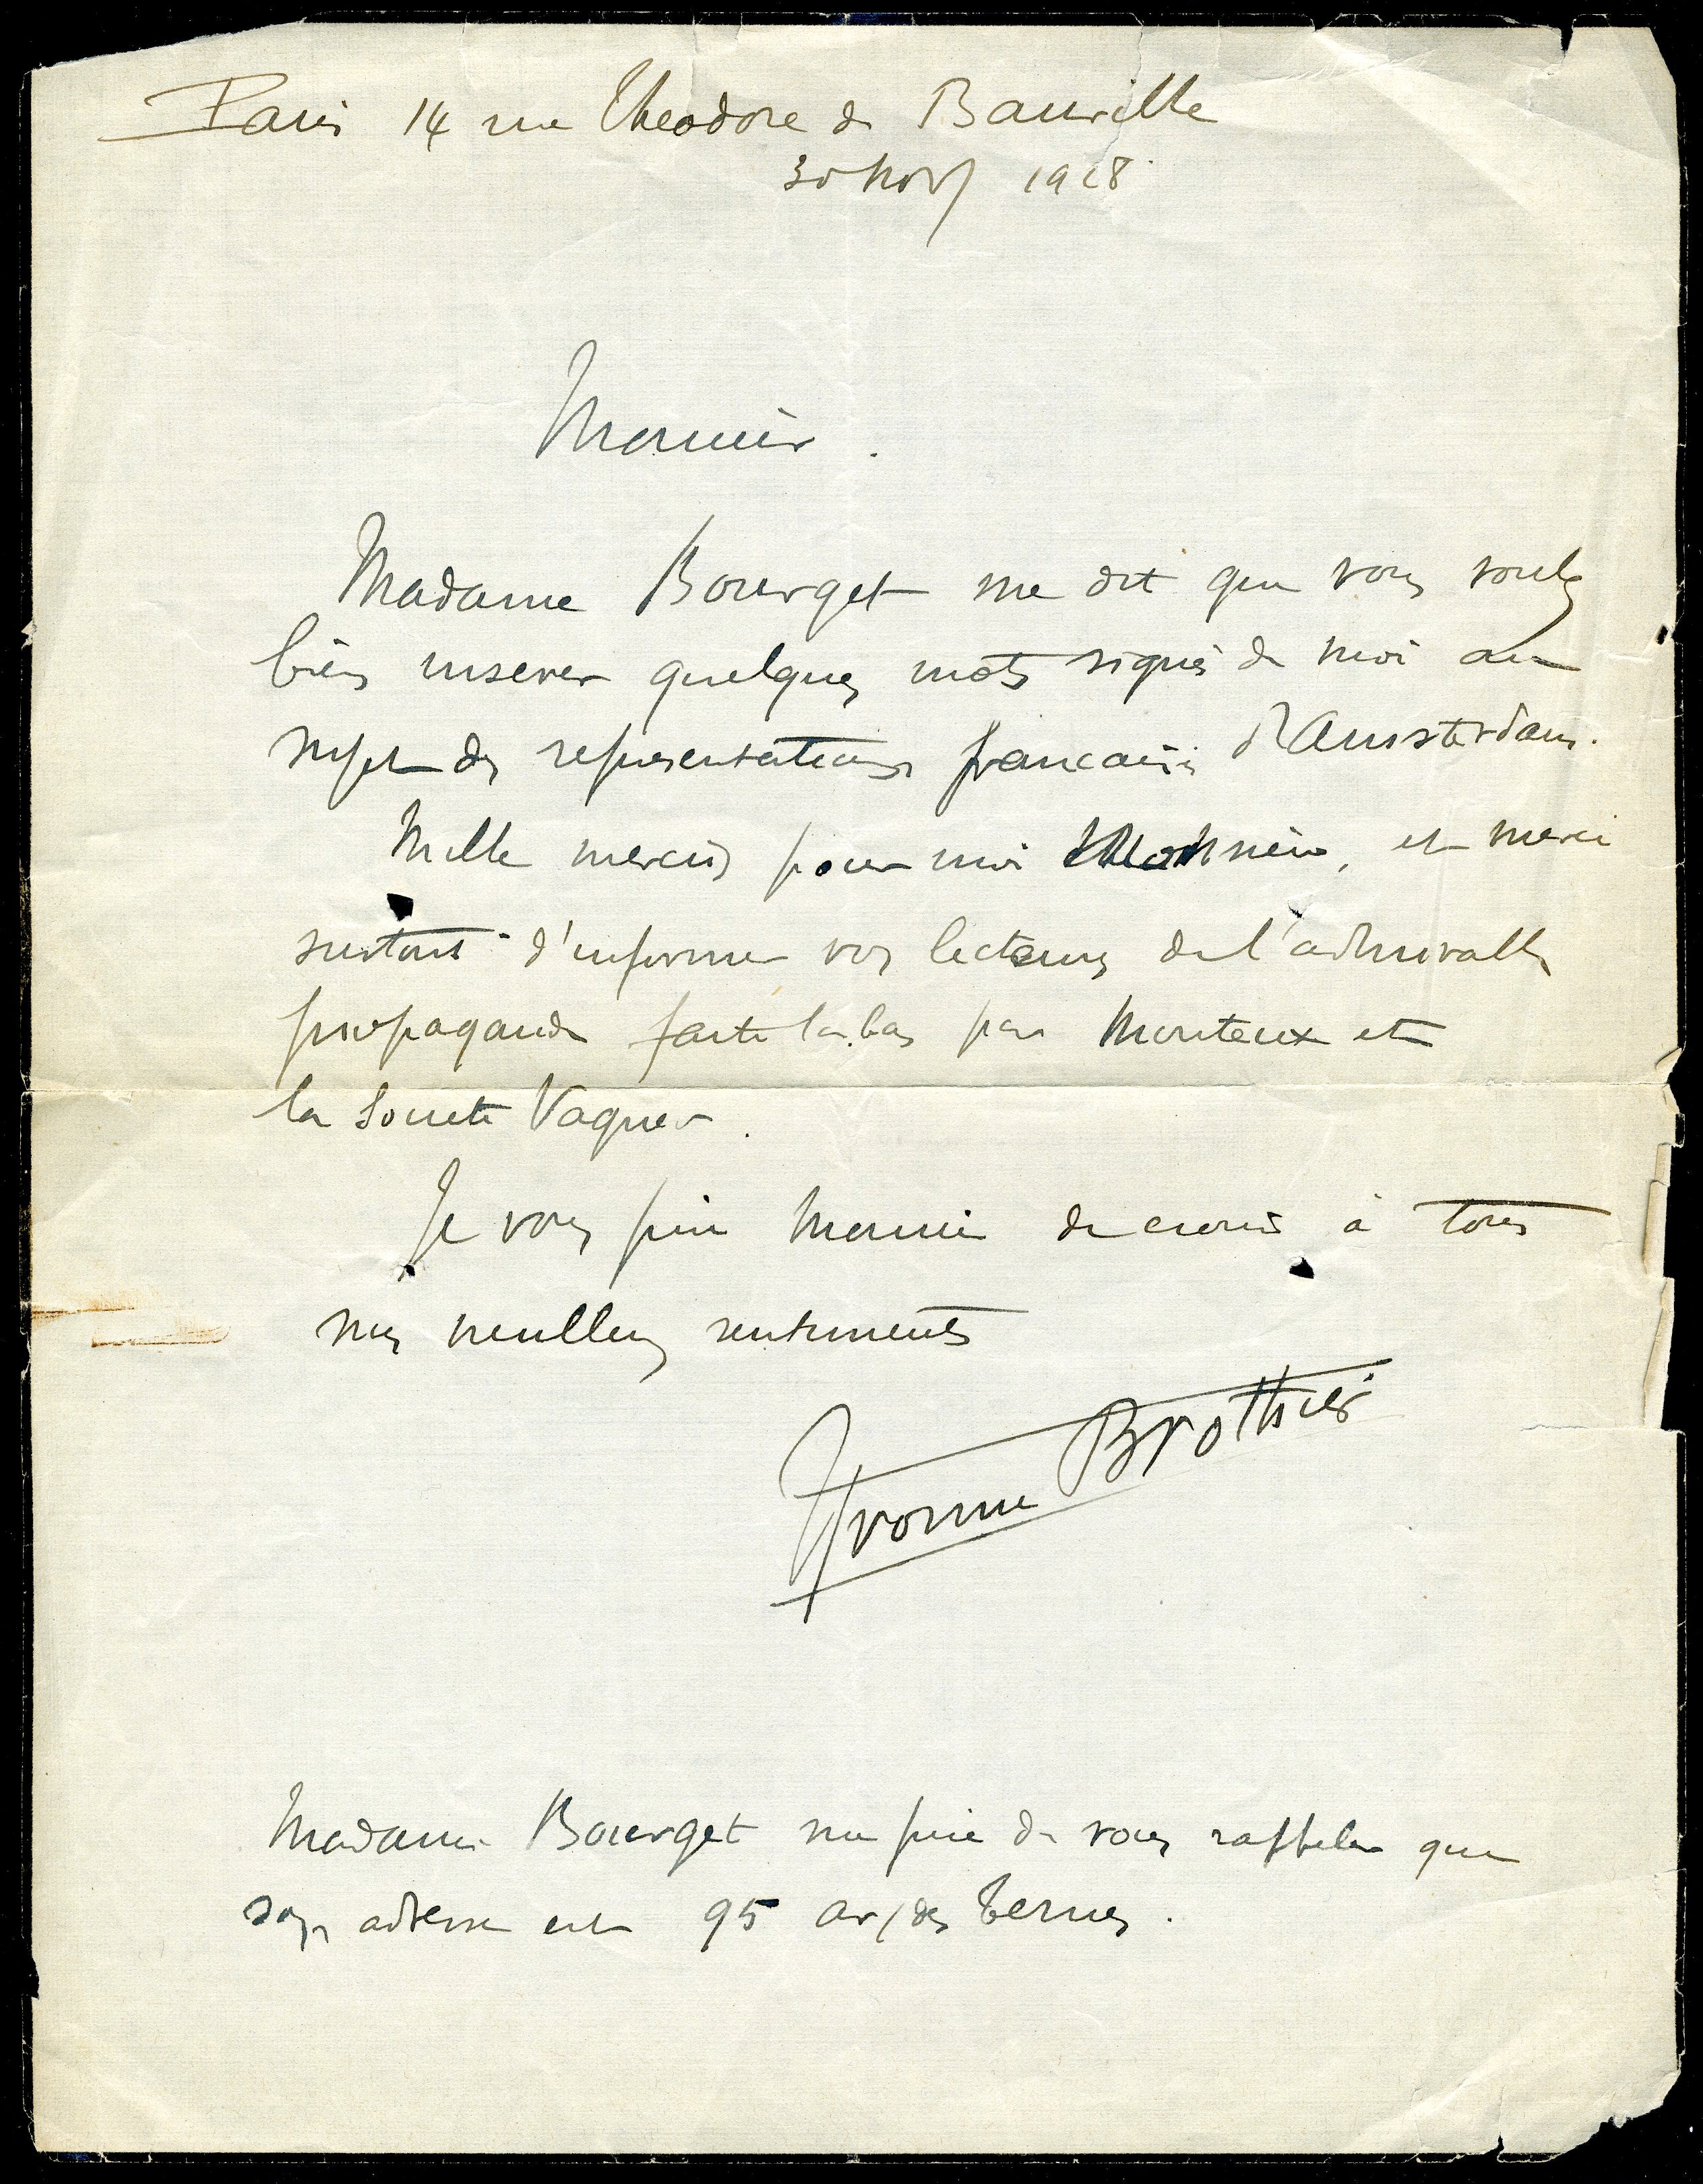 Paris 14 rue Theodore de Banville
30 Nov 1928
Monsieur.
Madame Bourget me dit que vous voulez
bien inserer quelques mots signés de moi au
sujet des representations francaises d'Amsterdam.
Mille mercis pour moi Monsieur, et merci
surtout d'informer vos lecteurs de l'admirable
propagande faite la bas par Monteux et
la Societe Vagner.
Je vous prie Monsieur de croire à tous
mes meilleurs sentiments
Yvonne Brothier
Madame Bourget me prie de vous rappeler que
son adresse est 95 av/des Ternes.